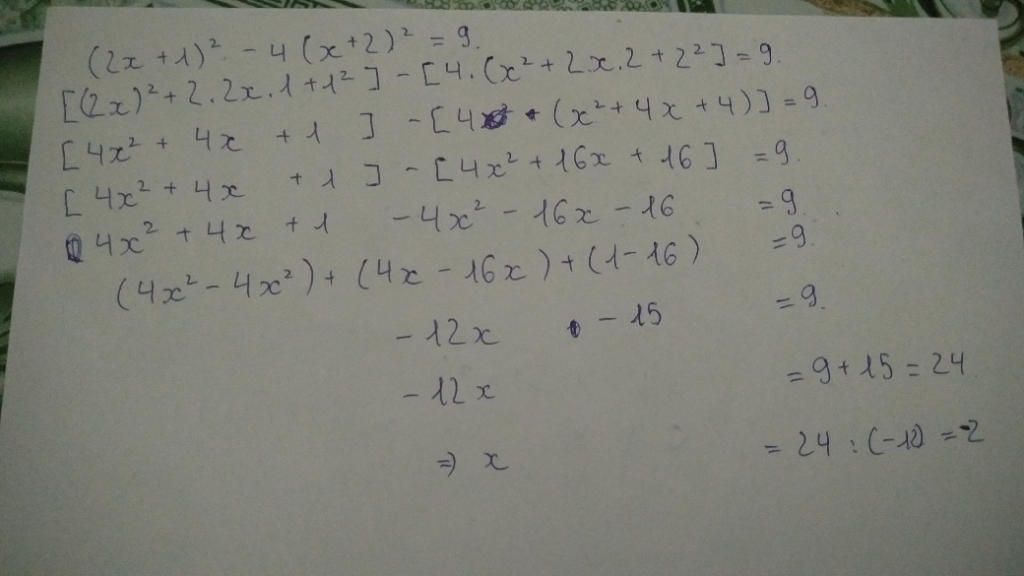 (2x + 1)² - 4 (x+2)² = 9.
[(2x)² + 2.2x.1 + 1²] - [4.(x² + 2x.2 + 2²] = 9.
[4x² + 4x + 1] - [4 . (x² + 4x + 4)] = 9.
[4x² + 4x + 1] - [4x² + 16x + 16] = 9.
4x² + 4x + 1 - 4x² - 16x - 16 = 9.
(4x² - 4x²) + (4x - 16x) + (1 - 16) = 9.
- 12x - 15 = 9.
- 12x = 9 + 15 = 24
⇒ x = 24 : (-12) = -2